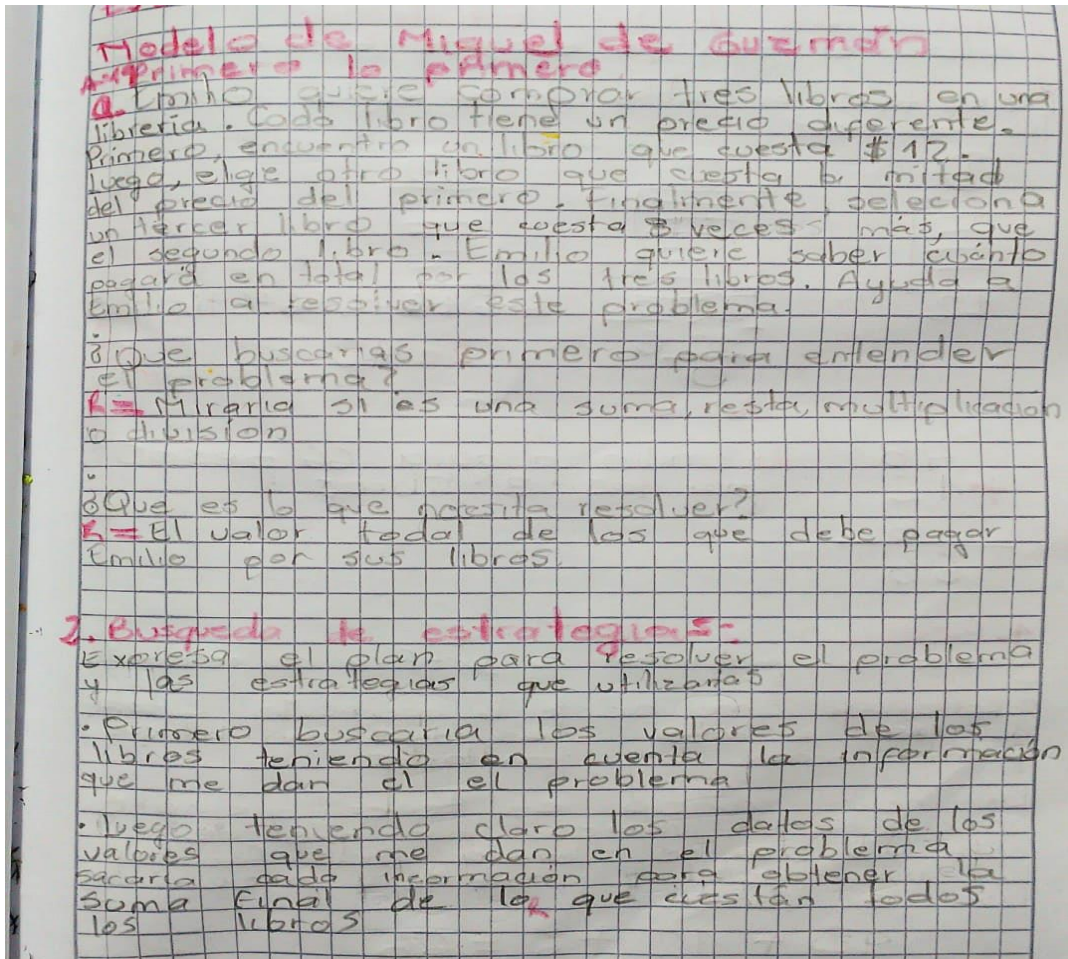 Modelo de Miguel de Guzmán
Primero lo primero
a. Emilio quiere comprar tres libros en una
libreria. Cada libro tiene un precio diferente.
Primero, encuentra un libro que cuesta $12.
luego, elige otro libro que cuesta la mitad
del precio del primero. Finalmente, seleciona
un tercer libro que cuesta 3 veces más, que
el segundo libro. Emilio quiere saber cuánto
pagará en total por los tres libros. Ayuda a
Emilio a resolver este problema.
¿Que buscarias primero para entender
el problema?
R= Miraria si es una suma, resta, multiplicación
o división
¿Que es lo que necesita resolver?
R= El valor todal de los que debe pagar
Emilio por sus libros.
2. Busqueda de estrategias:
Expresa el plan para resolver el problema
y las estrategias que utilizarias
• Primero buscaria los valores de los
libros teniendo en cuenta la información
que me dan el el problema
• luego teniendo claro los datos de los
valores que me dan en el problema
sacaria cada información para obtener la
suma final de lo que cuestan todos
los libros